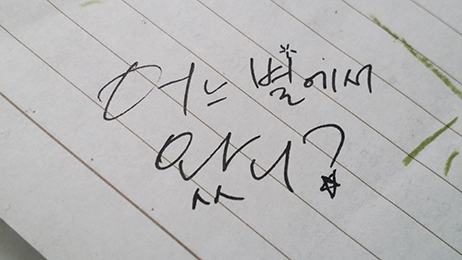 어느 별에서
왔니?